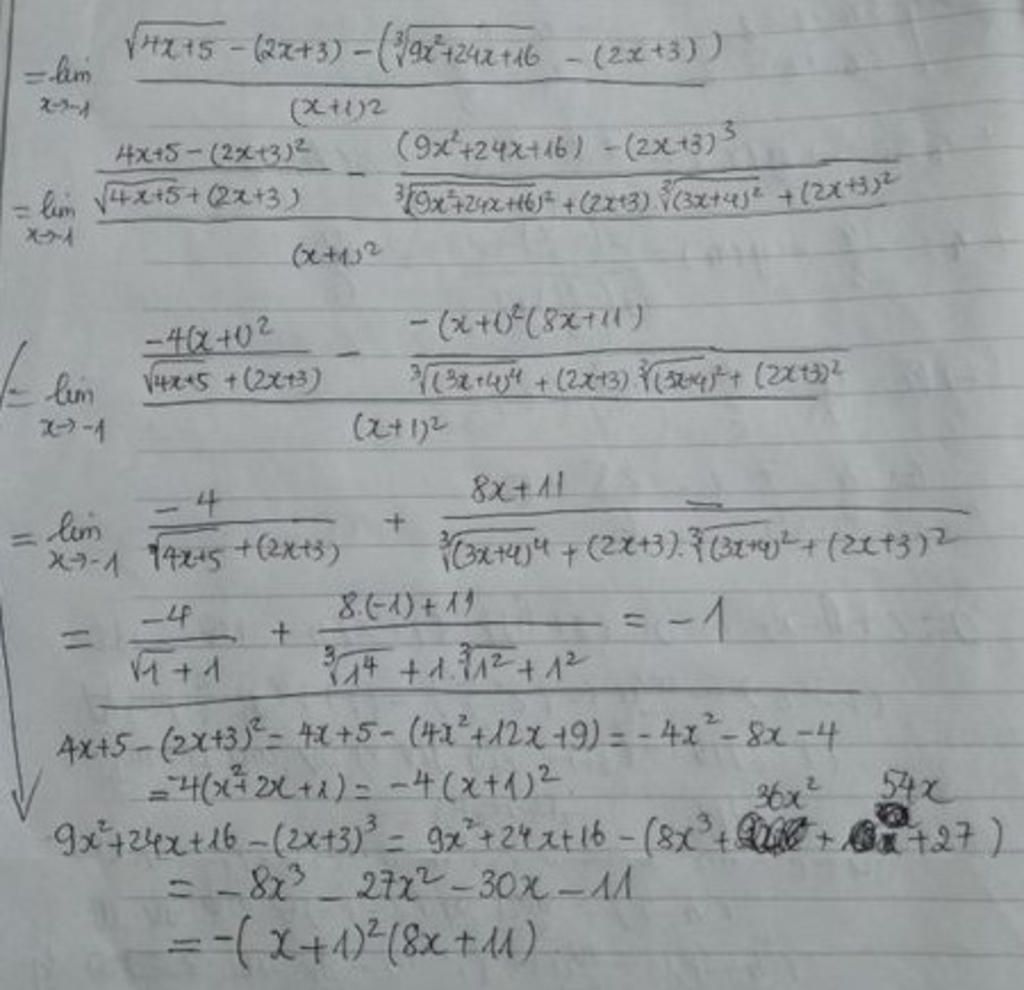 = lim x→-1 (√(4x+5) - (2x+3) - (∛(9x²+24x+16) - (2x+3))) / (x+1)²
= lim x→-1 ((4x+5-(2x+3)²) / (√(4x+5)+(2x+3)) - ((9x²+24x+16)-(2x+3)³) / (∛(9x²+24x+16)² + (2x+3).∛(3x+4)² + (2x+3)²)) / (x+1)²
= lim x→-1 ((-4(x+1)²) / (√(4x+5) + (2x+3)) - (-(x+1)²(8x+11)) / (∛(3x+4)⁴ + (2x+3).∛(3x+4)² + (2x+3)²)) / (x+1)²
= lim x→-1 (-4) / (√(4x+5) + (2x+3)) + (8x+11) / (∛(3x+4)⁴ + (2x+3).∛(3x+4)² + (2x+3)²)
= (-4) / (√1 + 1) + (8.(-1)+11) / (∛1⁴ + 1.∛1² + 1²) = -1
4x+5-(2x+3)² = 4x+5-(4x²+12x+9) = -4x²-8x-4
= -4(x²+2x+1) = -4(x+1)²
9x²+24x+16-(2x+3)³ = 9x²+24x+16-(8x³+36x²+54x+27)
= -8x³-27x²-30x-11
= -(x+1)²(8x+11)